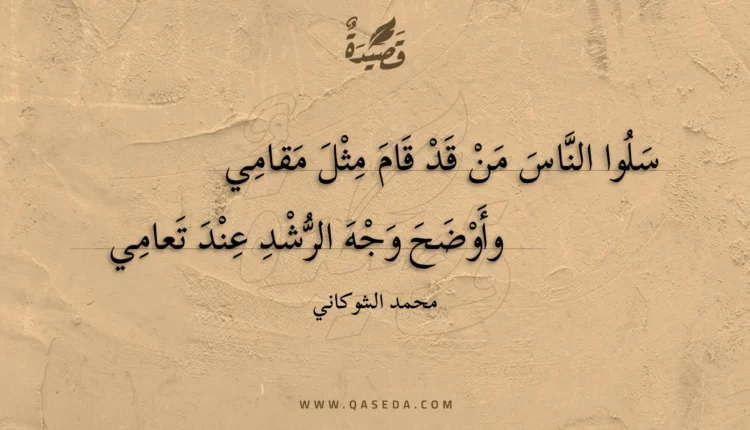 قَصِيْدَةٌ
سَلُوا النَّاسَ مَنْ قَدْ قَامَ مِثْلَ مَقامِي
وأَوْضَحَ وَجْهَ الرُّشْدِ عِنْدَ تَعامِي
محمد الشوكاني
WWW.QASEDA.COM